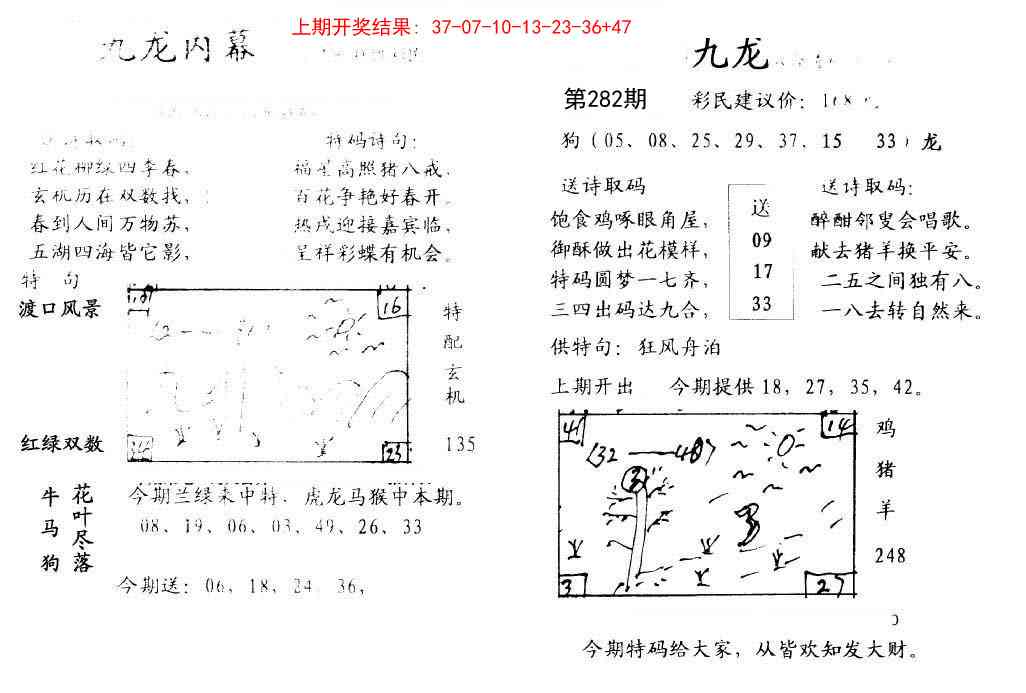 上期开奖结果：37-07-10-13-23-36+47
九龙内幕
特码诗句：
红花柳绿四季春，
福星高照猪八戒，
玄机历在双数找，
百花争艳好春开。
春到人间万物苏，
热戌迎接嘉宾临，
五湖四海皆它影，
呈祥彩蝶有机会。
特 句
渡口风景
16
特配玄机
红绿双数
23
135
牛 马 狗
花叶尽落
今期兰绿来中特．虎龙马猴中本期。
08、19、06、03、49、26、33
今期送：06，18，24 36，
九龙
第282期 彩民建议价：
狗（05、08、25、29、37．15 33）龙
送诗取码
饱食鸡啄眼角屋，
御酥做出花模样，
特码圆梦一七齐，
三四出码达九合，
送
09
17
33
送诗取码：
醉酣邻叟会唱歌。
献去猪羊换平安。
二五之间独有八。
一八去转自然来。
供特句：狂风舟泊
上期开出 今期提供18，27，35，42。
41
14
32
3
27
鸡
猪
羊
248
今期特码给大家，从皆欢知发大财。